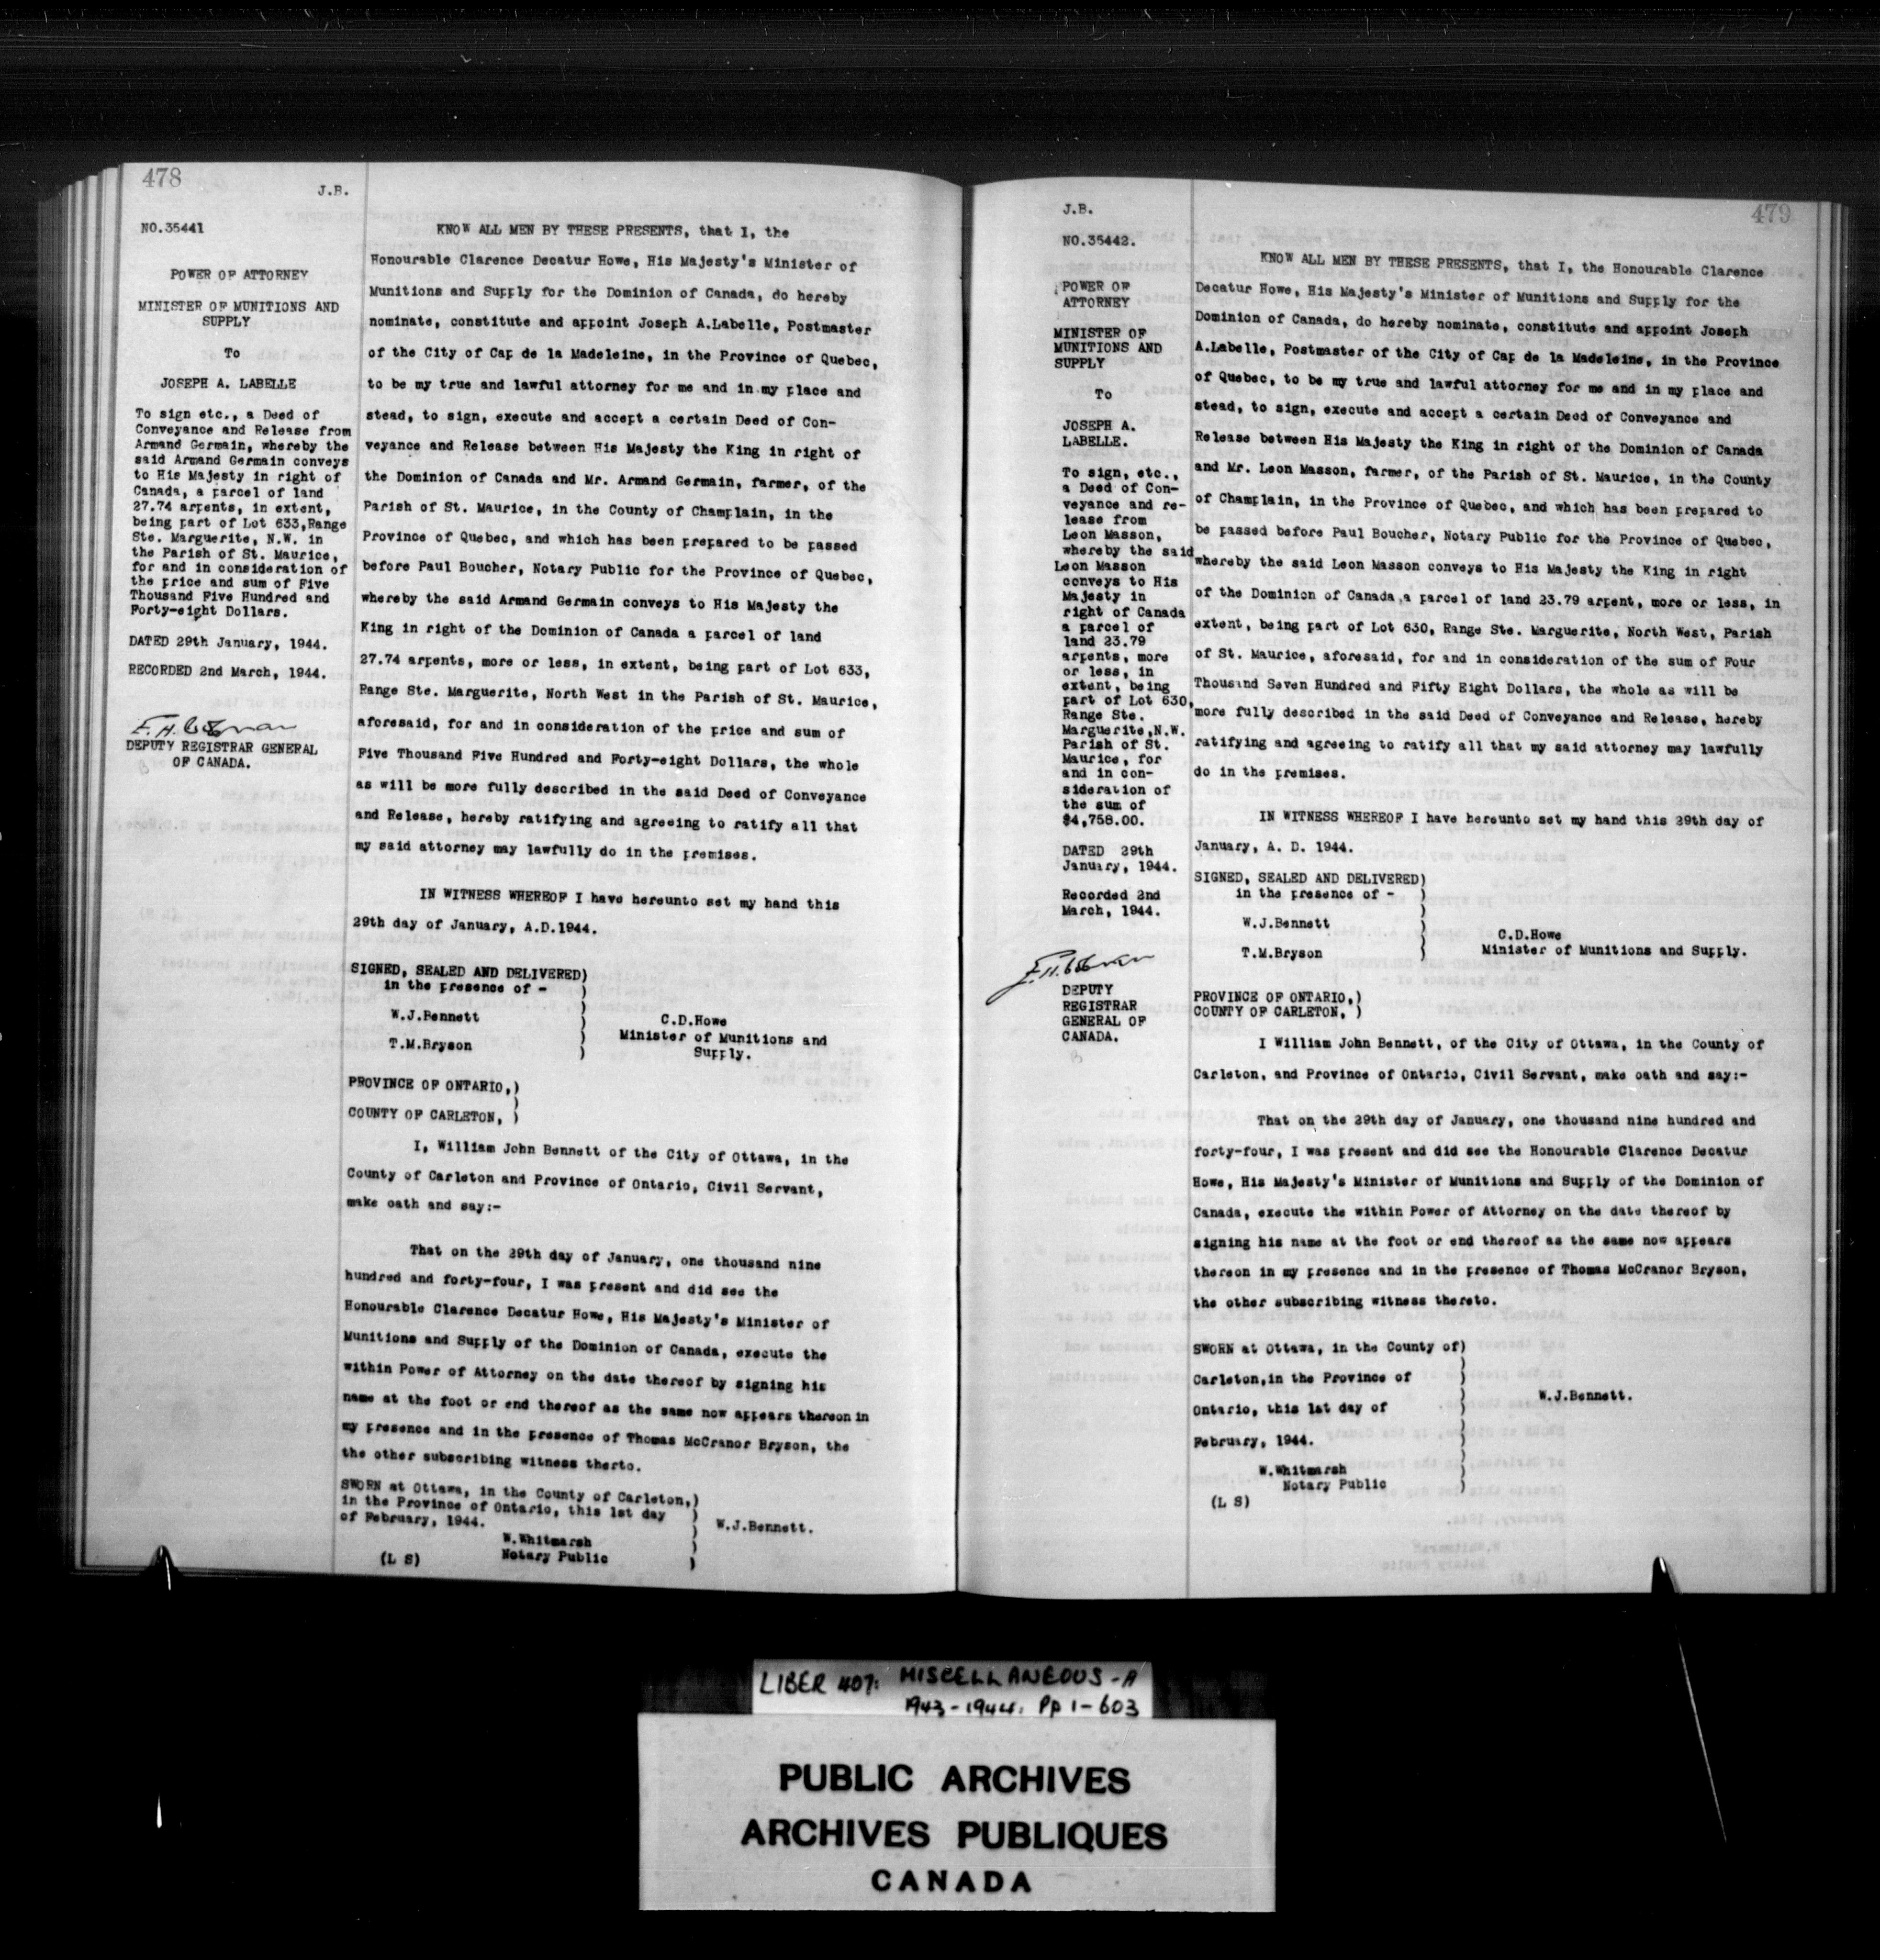 478
J.B.
NO.35441
POWER OF ATTORNEY
MINISTER OF MUNITIONS AND
SUPPLY
To
JOSEPH A. LABELLE
To sign etc., a Deed of
Conveyance and Release from
Armand Germain, whereby the
said Armand Germain conveys
to His Majesty in right of
Canada, a parcel of land
27.74 arpents, in extent,
being part of Lot 633,Range
Ste. Marguerite, N.W. in
the Parish of St. Maurice,
for and in consideration of
the price and sum of Five
Thousand Five Hundred and
Forty-eight Dollars.
DATED 29th January, 1944.
RECORDED 2nd March, 1944.
DEPUTY REGISTRAR GENERAL
OF CANADA.
KNOW ALL MEN BY THESE PRESENTS, that I, the
Honourable Clarence Decatur Howe, His Majesty's Minister of
Munitions and Supply for the Dominion of Canada, do hereby
nominate, constitute and appoint Joseph A.Labelle, Postmaster
of the City of Cap de la Madeleine, in the Province of Quebec,
to be my true and lawful attorney for me and in my place and
stead, to sign, execute and accept a certain Deed of Con-
veyance and Release between His Majesty the King in right of
the Dominion of Canada and Mr. Armand Germain, farmer, of the
Parish of St. Maurice, in the County of Champlain, in the
Province of Quebec, and which has been prepared to be passed
before Paul Boucher, Notary Public for the Province of Quebec,
whereby the said Armand Germain conveys to His Majesty the
King in right of the Dominion of Canada a parcel of land
27.74 arpents, more or less, in extent, being part of Lot 633,
Range Ste. Marguerite, North West in the Parish of St. Maurice,
aforesaid, for and in consideration of the price and sum of
Five Thousand Five Hundred and Forty-eight Dollars, the whole
as will be more fully described in the said Deed of Conveyance
and Release, hereby ratifying and agreeing to ratify all that
my said attorney may lawfully do in the premises.
IN WITNESS WHEREOF I have hereunto set my hand this
29th day of January, A.D.1944.
SIGNED, SEALED AND DELIVERED)
in the presence of - )
W.J.Bennett )
T.M.Bryson )
C.D.Howe
Minister of Munitions and
Supply.
PROVINCE OF ONTARIO,)
)
COUNTY OF CARLETON, )
I, William John Bennett of the City of Ottawa, in the
County of Carleton and Province of Ontario, Civil Servant,
make oath and say:-
That on the 29th day of January, one thousand nine
hundred and forty-four, I was present and did see the
Honourable Clarence Decatur Howe, His Majesty's Minister of
Munitions and Supply of the Dominion of Canada, execute the
within Power of Attorney on the date thereof by signing his
name at the foot or end thereof as the same now appears thereon in
my presence and in the presence of Thomas McCranor Bryson, the
the other subscribing witness therto.
SWORN at Ottawa, in the County of Carleton,)
in the Province of Ontario, this 1st day )
of February, 1944. ) W.J.Bennett.
W.Whitmarsh )
(L S) Notary Public )
479
J.B.
NO.35442.
POWER OF
ATTORNEY
MINISTER OF
MUNITIONS AND
SUPPLY
To
JOSEPH A.
LABELLE.
To sign, etc.,
a Deed of Con-
veyance and re-
lease from
Leon Masson,
whereby the said
Leon Masson
conveys to His
Majesty in
right of Canada
a parcel of
land 23.79
arpents, more
or less, in
extent, being
part of Lot 630,
Range Ste.
Marguerite,N.W.
Parish of St.
Maurice, for
and in con-
sideration of
the sum of
$4,758.00.
DATED 29th
January, 1944.
Recorded 2nd
March, 1944.
DEPUTY
REGISTRAR
GENERAL OF
CANADA.
KNOW ALL MEN BY THESE PRESENTS, that I, the Honourable Clarence
Decatur Howe, His Majesty's Minister of Munitions and Supply for the
Dominion of Canada, do hereby nominate, constitute and appoint Joseph
A.Labelle, Postmaster of the City of Cap de la Madeleine, in the Province
of Quebec, to be my true and lawful attorney for me and in my place and
stead, to sign, execute and accept a certain Deed of Conveyance and
Release between His Majesty the King in right of the Dominion of Canada
and Mr. Leon Masson, farmer, of the Parish of St. Maurice, in the County
of Champlain, in the Province of Quebec, and which has been prepared to
be passed before Paul Boucher, Notary Public for the Province of Quebec,
whereby the said Leon Masson conveys to His Majesty the King in right
of the Dominion of Canada a parcel of land 23.79 arpent, more or less, in
extent, being part of Lot 630, Range Ste. Marguerite, North West, Parish
of St. Maurice, aforesaid, for and in consideration of the sum of Four
Thousand Seven Hundred and Fifty Eight Dollars, the whole as will be
more fully described in the said Deed of Conveyance and Release, hereby
ratifying and agreeing to ratify all that my said attorney may lawfully
do in the premises.
IN WITNESS WHEREOF I have hereunto set my hand this 29th day of
January, A. D. 1944.
SIGNED, SEALED AND DELIVERED)
in the presence of - )
)
W.J.Bennett )
T.M.Bryson )
C.D.Howe
Minister of Munitions and Supply.
PROVINCE OF ONTARIO,)
COUNTY OF CARLETON, )
I William John Bennett, of the City of Ottawa, in the County of
Carleton, and Province of Ontario, Civil Servant, make oath and say:-
That on the 29th day of January, one thousand nine hundred and
forty-four, I was present and did see the Honourable Clarence Decatur
Howe, His Majesty's Minister of Munitions and Supply of the Dominion of
Canada, execute the within Power of Attorney on the date thereof by
signing his name at the foot or end thereof as the same now appears
thereon in my presence and in the presence of Thomas McCranor Bryson,
the other subscribing witness thereto.
SWORN at Ottawa, in the County of)
Carleton,in the Province of )
Ontario, this 1st day of ) W.J.Bennett.
February, 1944. )
W.Whitmarsh )
Notary Public )
(L S)
LIBER 407: MISCELLANEOUS-A
1943-1944. Pp 1-603
PUBLIC ARCHIVES
ARCHIVES PUBLIQUES
CANADA